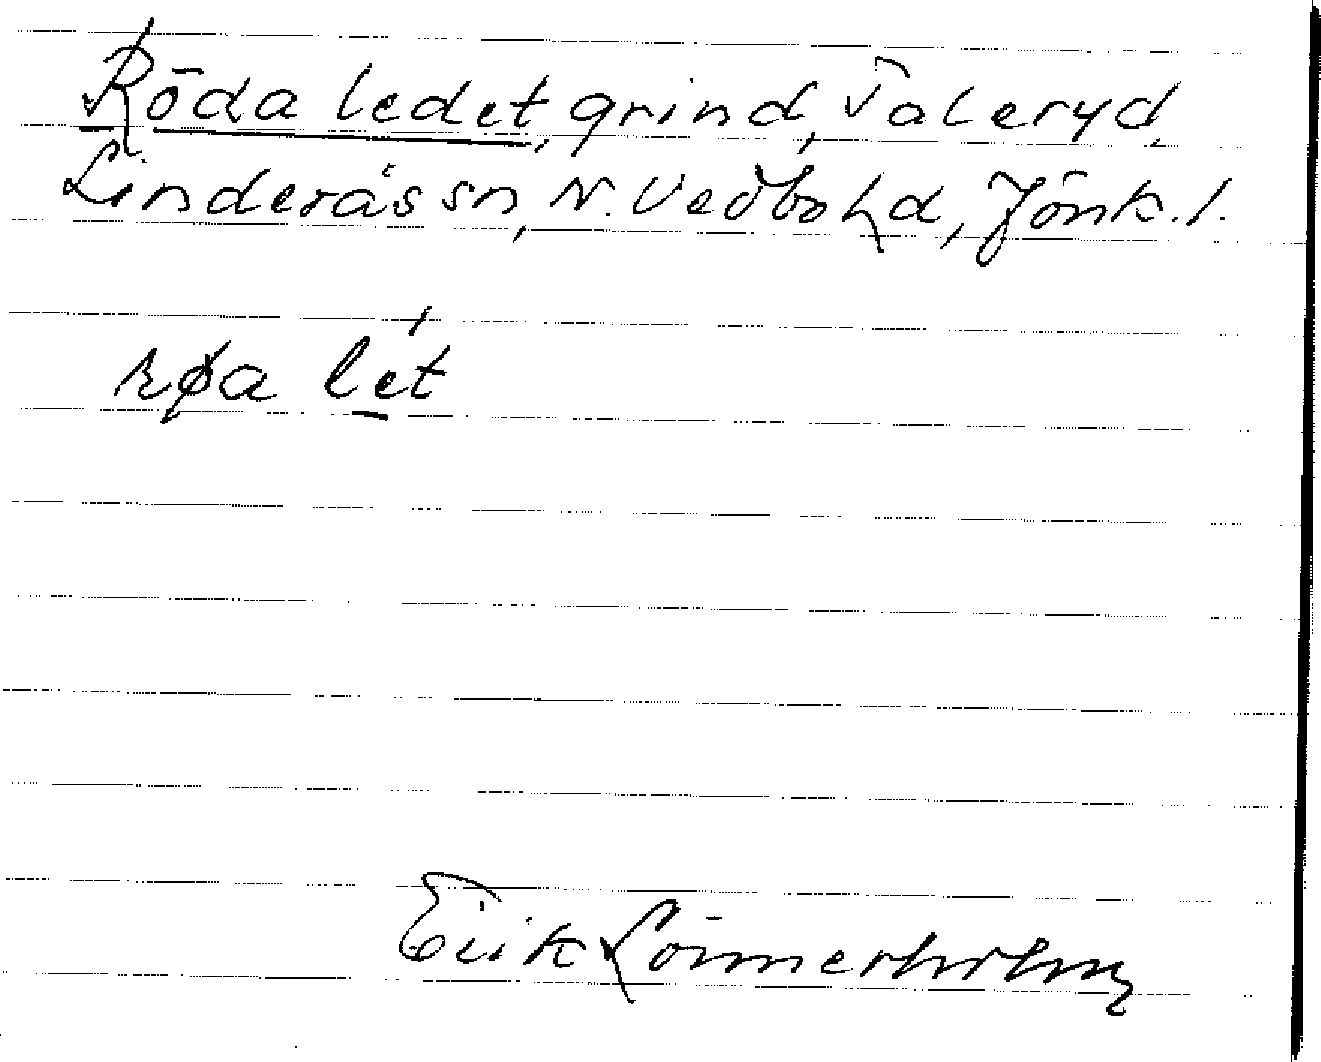 Röda ledet, grind, Taleryd,
Linderås sn, N. Vedbo hd, Jönk. l.
røa let
Erik Lönnerholm